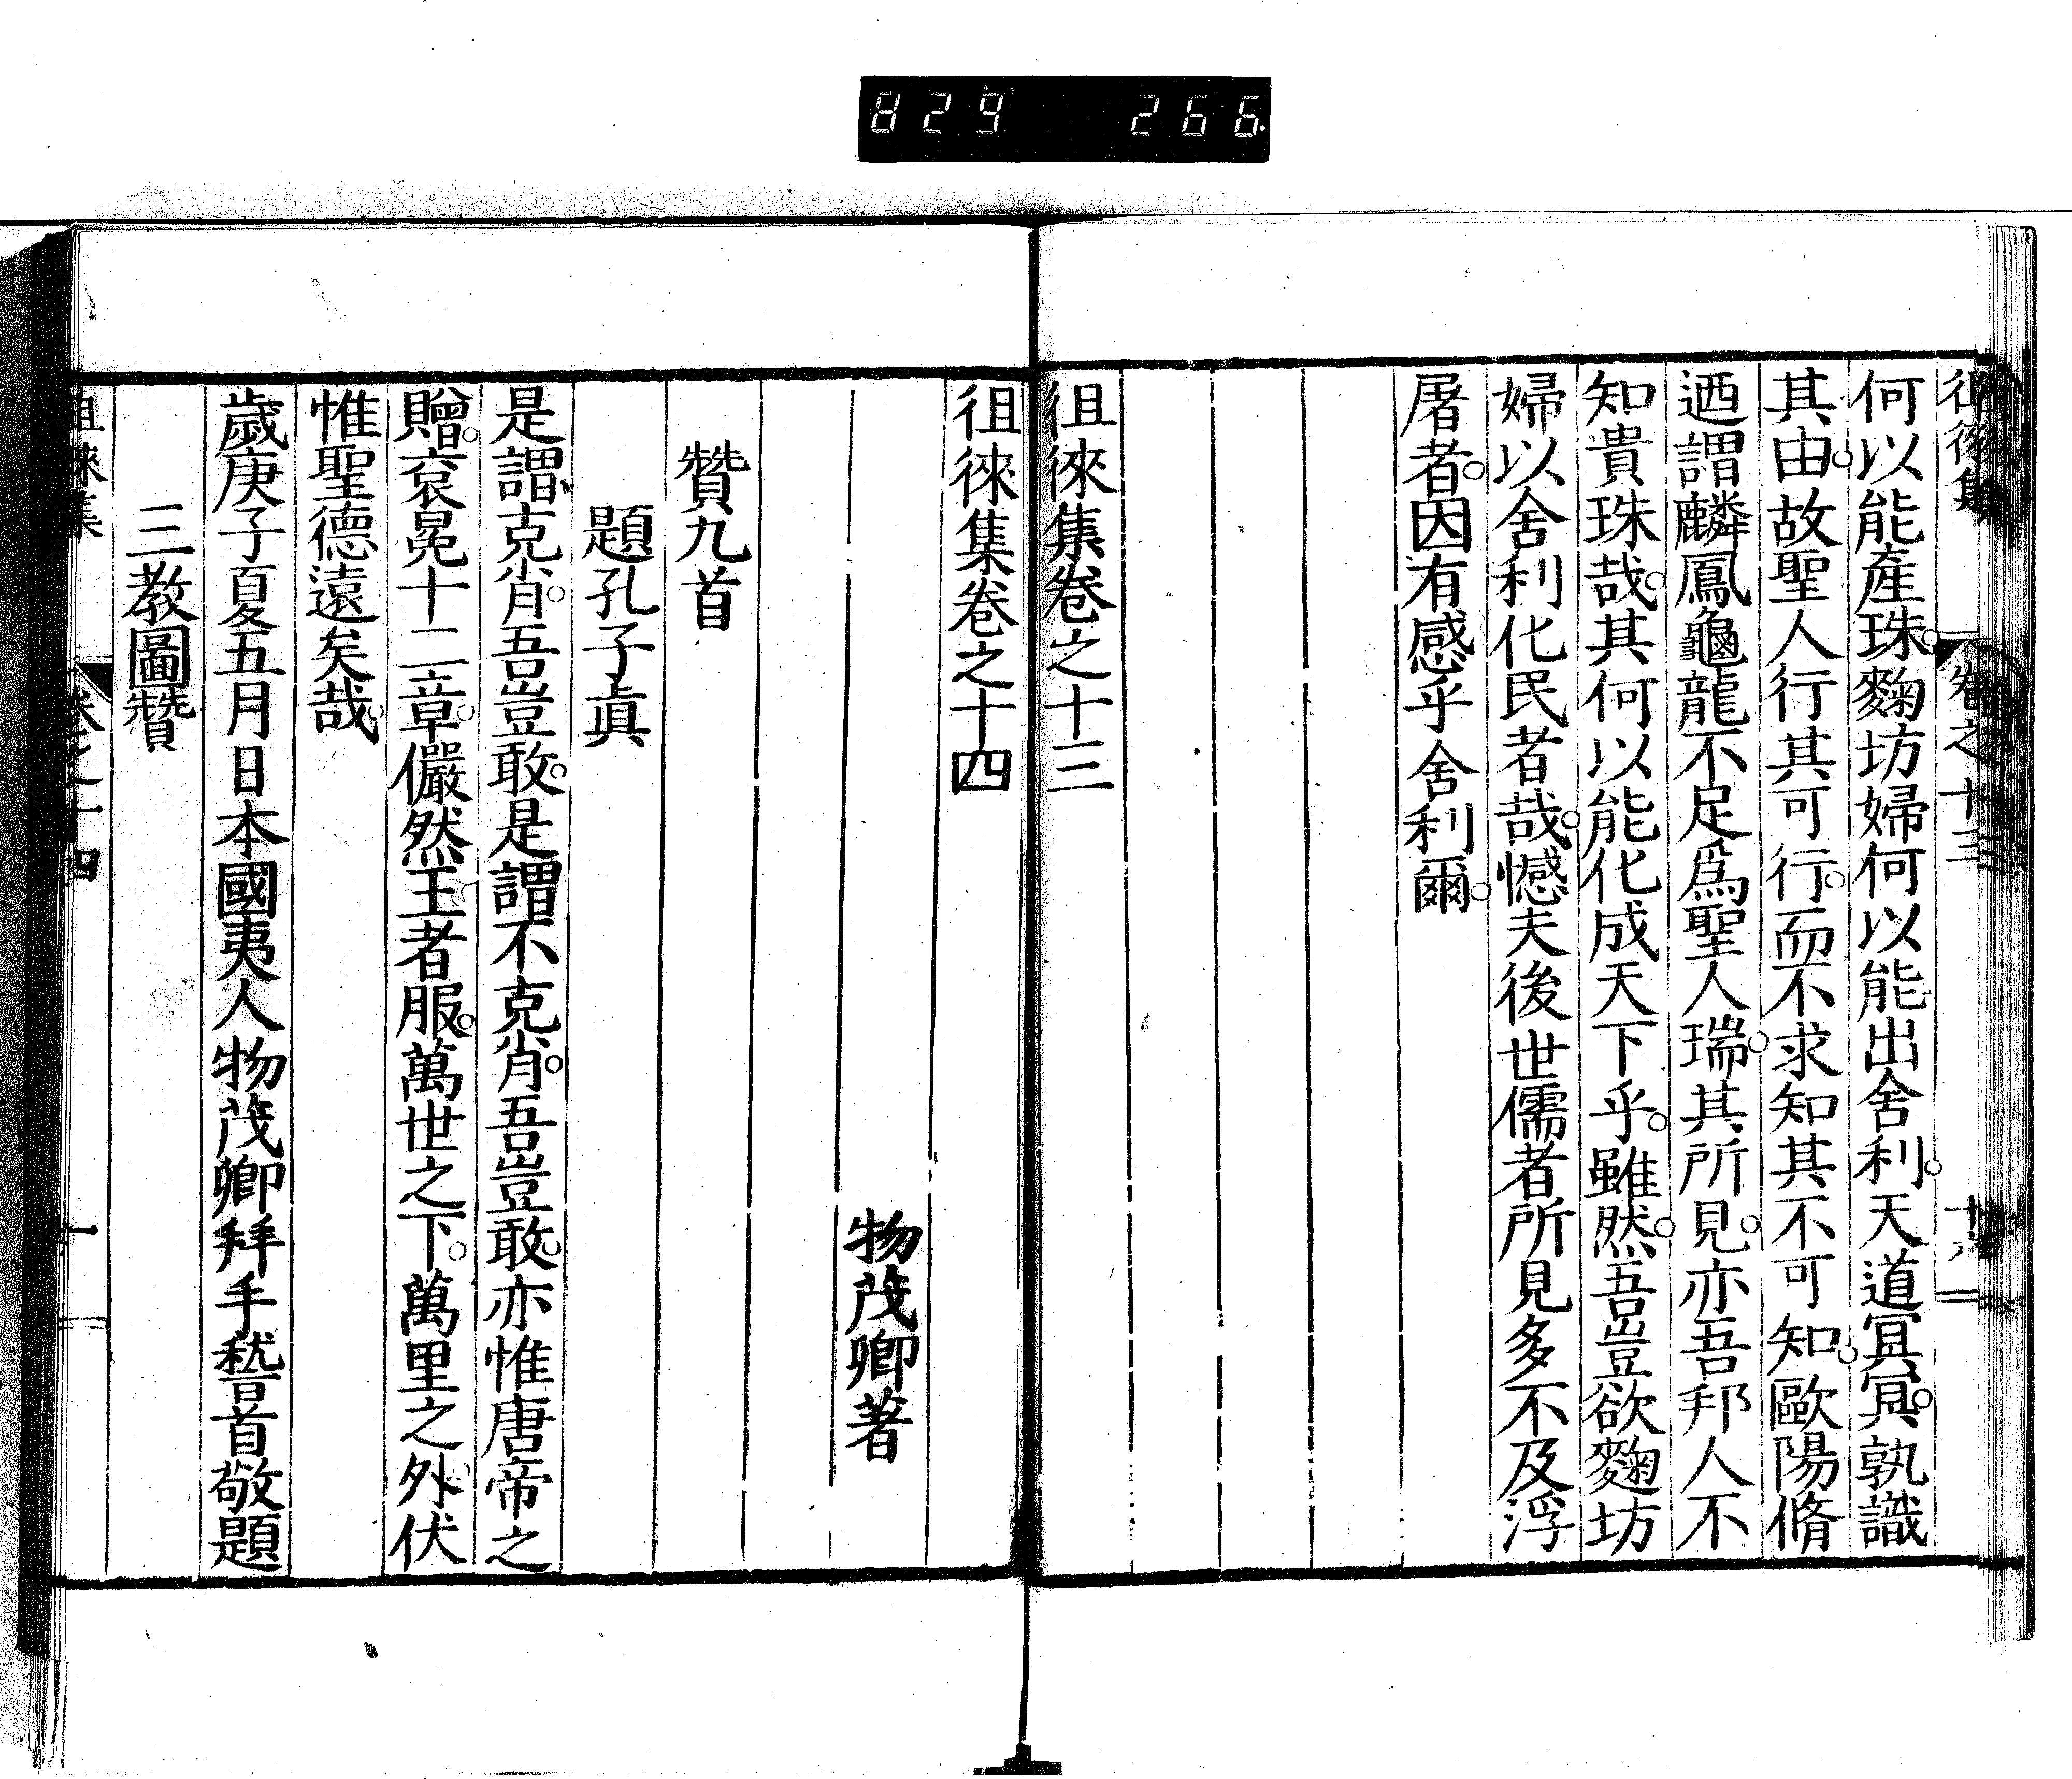 829 266
徂徠集
卷之十三
十八
何以能產珠。麴坊婦何以能出舍利。天道冥冥。孰識
其由。故聖人行其可行。而不求知其不可知。歐陽脩
迺謂麟鳳龜龍不足爲聖人瑞。其所見。亦吾邦人不
知貴珠哉。其何以能化成天下乎。雖然。吾豈欲麴坊
婦以舍利化民者哉。憾夫後世儒者所見多不及浮
屠者。因有感乎舍利爾。
徂徠集卷之十三
徂徠集卷之十四
物茂卿著
贊九首
題孔子眞
是謂克肖。吾豈敢。是謂不克肖。吾豈敢。亦惟唐帝之
贈。袞冕十二章。儼然王者服。萬世之下。萬里之外。伏
惟聖德遠矣哉。
歲庚子夏五月日本國夷人物茂卿拜手稽首敬題
三教圖贊
徂徠集
卷之十四
一